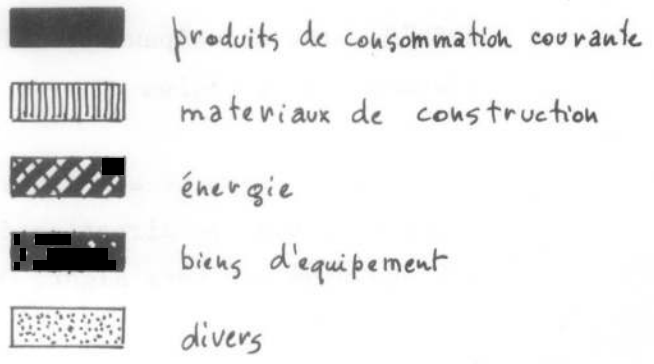 produits de consommation courante
materiaux de construction
énergie
biens d'equipement
divers